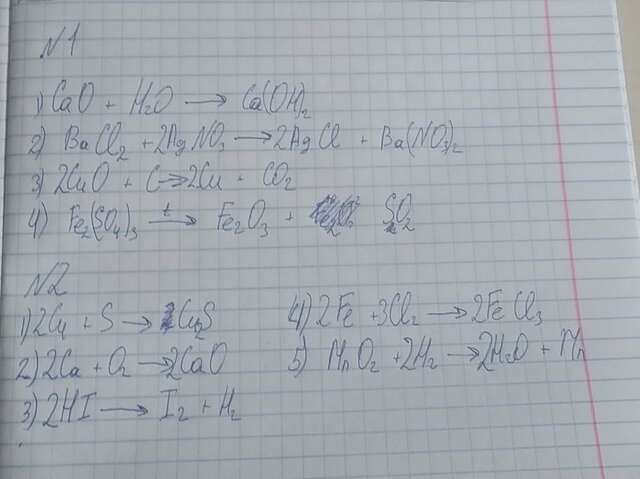 N1
1) CaO + H2O → Ca(OH)2
2) BaCl2 + 2AgNO3 → 2AgCl + Ba(NO3)2
3) 2CuO + C → 2Cu + CO2
4) Fe2(SO4)3 t→ Fe2O3 + SO2
N2
1) 2Cu + S → Cu2S
2) 2Ca + O2 → 2CaO
3) 2HI → I2 + H2
4) 2Fe + 3Cl2 → 2FeCl3
5) MnO2 + 2H2 → 2H2O + Mn